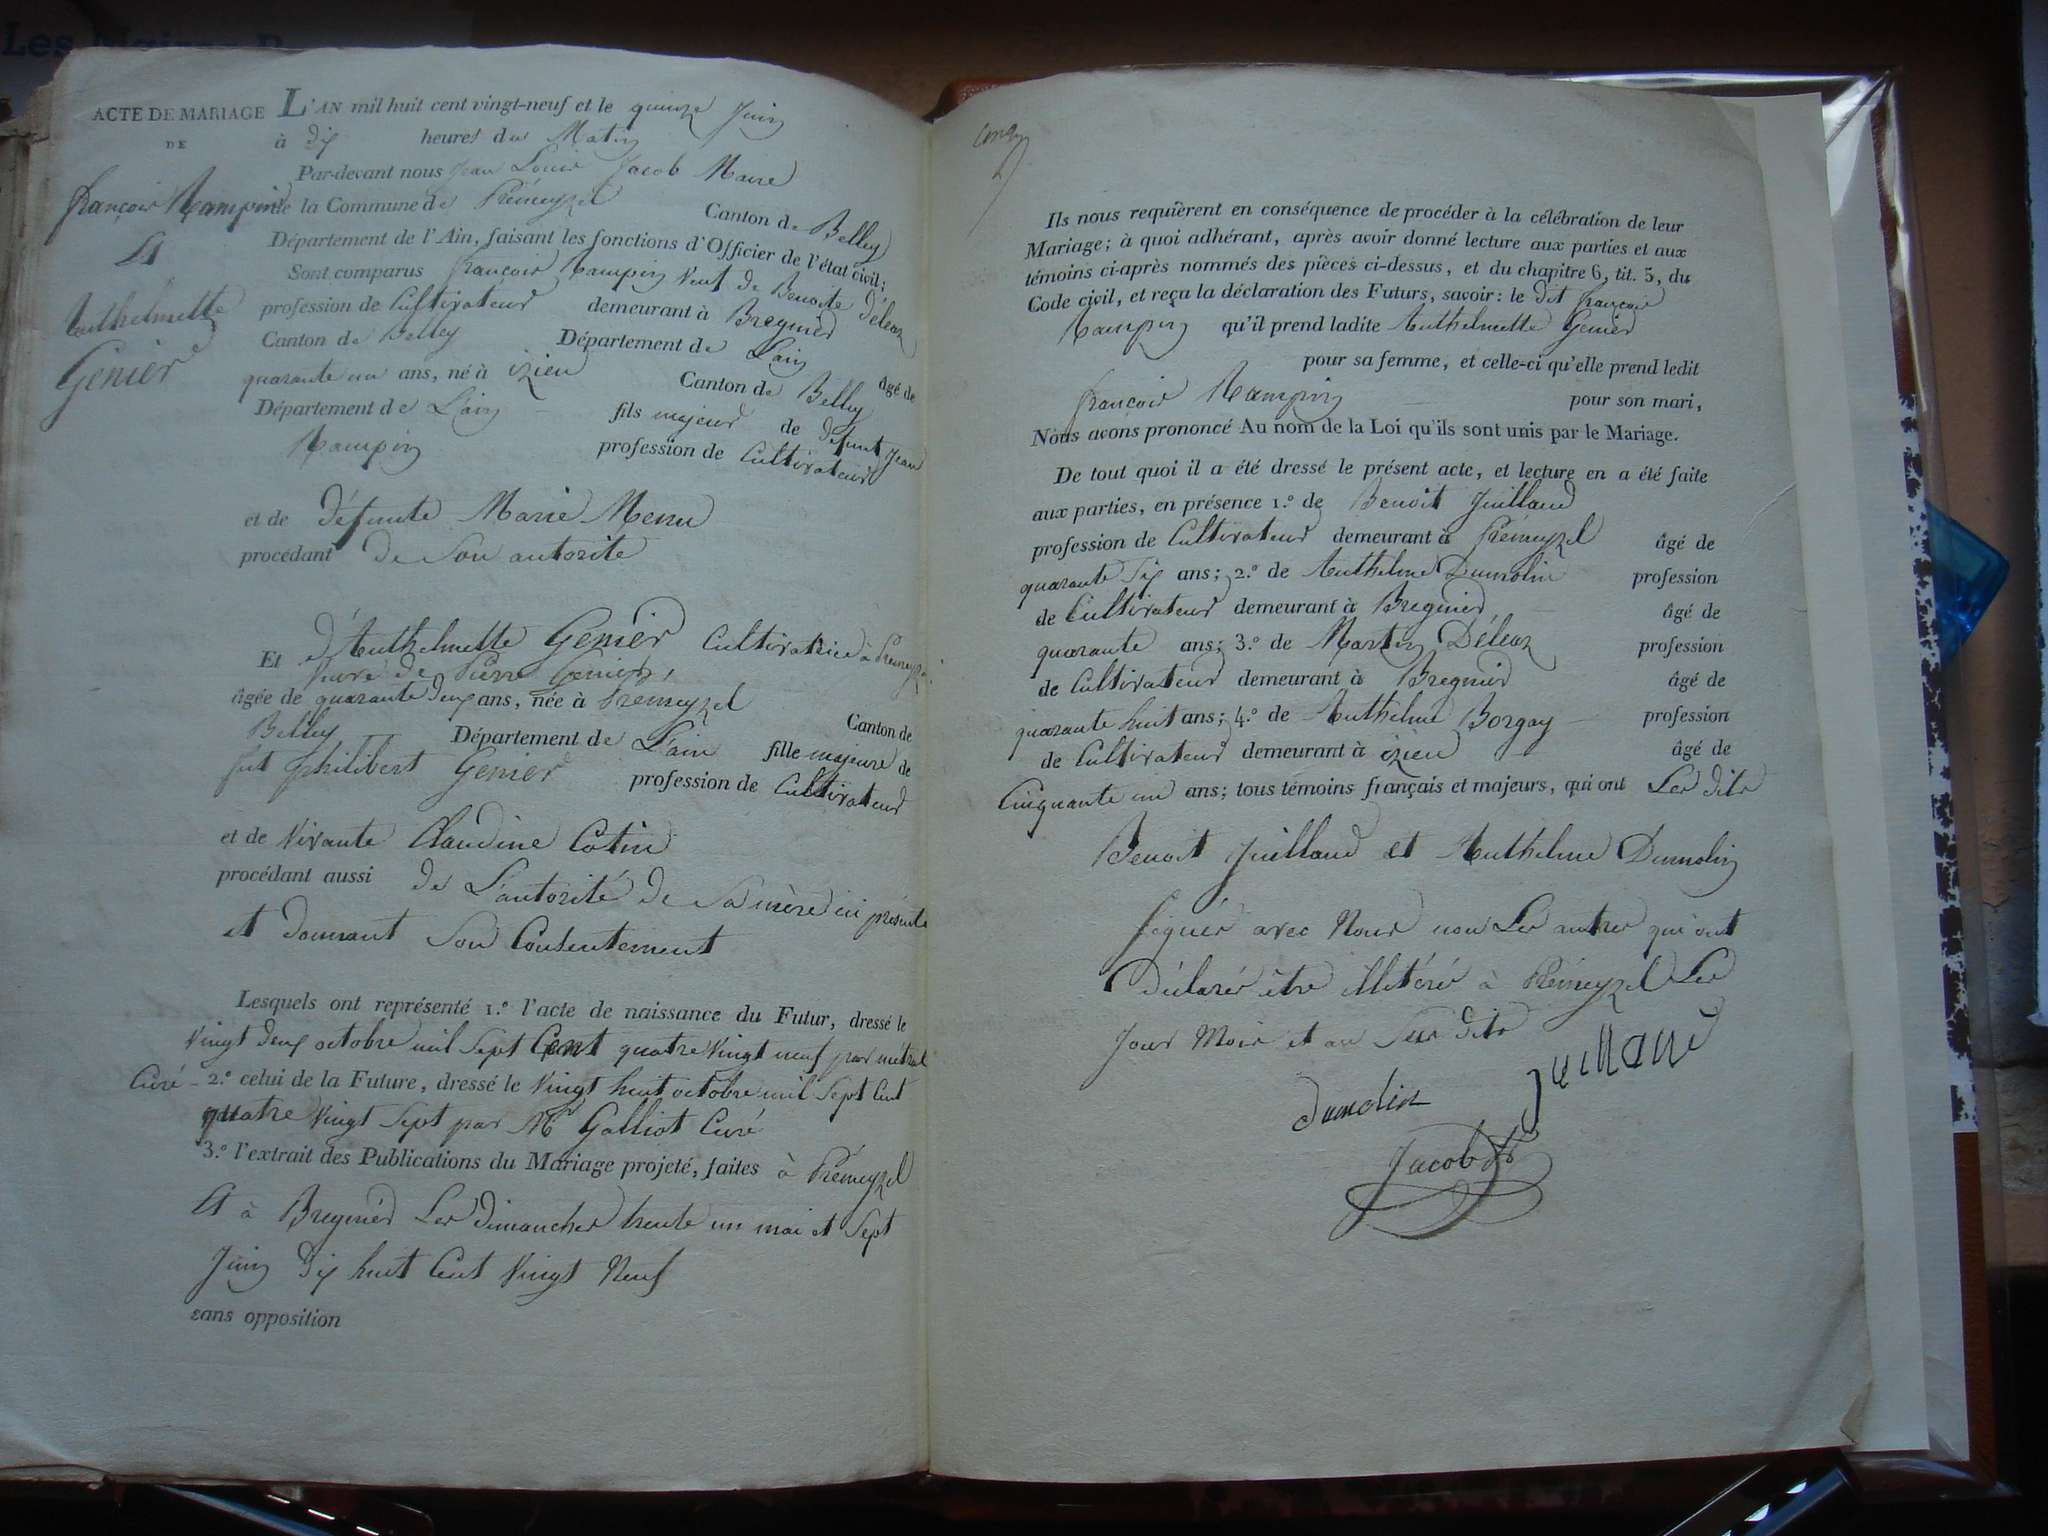 Les Maires
ACTE DE MARIAGE
DE
françois Rampin
Et
Anthelmette
Genier
L'AN mil huit cent vingt-neuf et le quinze Juin
à dix heures du Matin
Par-devant nous Jean Louis Jacob Maire
de la Commune de Prémeyzel Canton de Belley
Département de l'Ain, faisant les fonctions d'Officier de l'état civil;
Sont comparus françois Rampin Veuf de Benoite Déleaz
profession de Cultivateur demeurant à Bregnier
Canton de Belley Département de L'ain âgé de
quarante un ans, né à izieu Canton de Belley
Département de L'ain fils majeur de defunt Jean
Rampin profession de Cultivateur
et de défunte Marie Menu
procédant de Son autorite
Et d'Anthelmette Genier Cultivatrice à Premeyzel
Veuve de Pierre
âgée de quarante deux ans, née à Premeyzel Canton de
Belley Département de L'ain fille majeure de
fut philibert Genier profession de Cultivateur
et de Vivante Claudine Cotin
procédant aussi de L'autorité de Sa mère ici présente
et donnant Son Consentement
Lesquels ont représenté 1.º l'acte de naissance du Futur, dressé le
Vingt deux octobre mil Sept Cent quatre Vingt neuf par métral
Curé - 2.º celui de la Future, dressé le Vingt huit octobre mil Sept Cent
quatre Vingt Sept par Mr Galliot Curé
3.º l'extrait des Publications du Mariage projeté, faites à Prémeyzel
Et à Bregnier Les dimanches trente un mai et Sept
Juin dix huit Cent Vingt Neuf
sans opposition
Ils nous requièrent en conséquence de procéder à la célébration de leur
Mariage; à quoi adhérant, après avoir donné lecture aux parties et aux
témoins ci-après nommés des pièces ci-dessus, et du chapitre 6, tit. 5, du
Code civil, et reçu la déclaration des Futurs, savoir: le dit françois
Rampin qu'il prend ladite Anthelmette Genier
pour sa femme, et celle-ci qu'elle prend ledit
françois Rampin pour son mari,
Nous avons prononcé Au nom de la Loi qu'ils sont unis par le Mariage.
De tout quoi il a été dressé le présent acte, et lecture en a été faite
aux parties, en présence 1.º de Benoit Juilland
profession de Cultivateur demeurant à Prémeyzel âgé de
quarante Six ans; 2.º de Anthelme Dumolin profession
de Cultivateur demeurant à Bregnier âgé de
quarante ans; 3.º de Martin Déleaz profession
de Cultivateur demeurant à Bregnier âgé de
quarante huit ans; 4.º de Anthelme Borgay profession
de Cultivateur demeurant à izieu âgé de
Cinquante un ans; tous témoins français et majeurs, qui ont Les dits
Benoit Juilland et Anthelme Dumolin
Signés avec Nous non Les autres qui ont
Déclarés être illetérés à Prémeyzel Les
Jour Mois et an Sus dits
dumolin
Juilland
Jacob